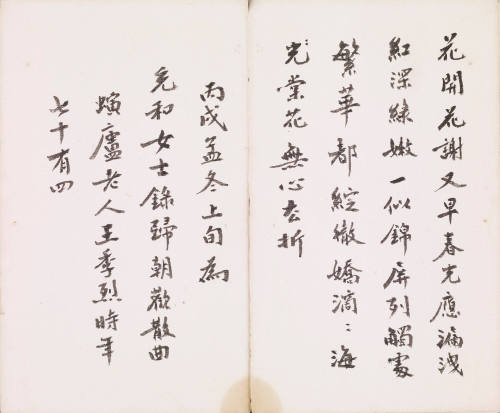 花開花謝又早春光應漏洩
紅深綠嫩一似錦屏列觸處
繁華都綻徹嬌滴〻海
棠花無心去折
丙戌孟冬上旬為
充和女士錄歸朝歡散曲
螾廬老人王季烈時年
七十有四